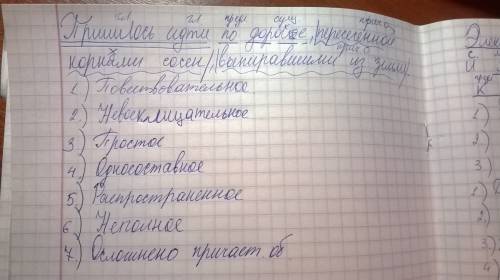 гл. гл. пред сущ прич.
Пришлось идти по дороге, /пересечённой
прич.
корнями сосен/, /выпиравшими из земли/.
1) Повествовательное
2) Невосклицательное
3) Простое
4) Односоставное
5) Распространенное
6) Неполное
7) Осложнено причаст. об
Элек
с.
й
пред
к
1)
2)
3)
1)
2)
3)
4)